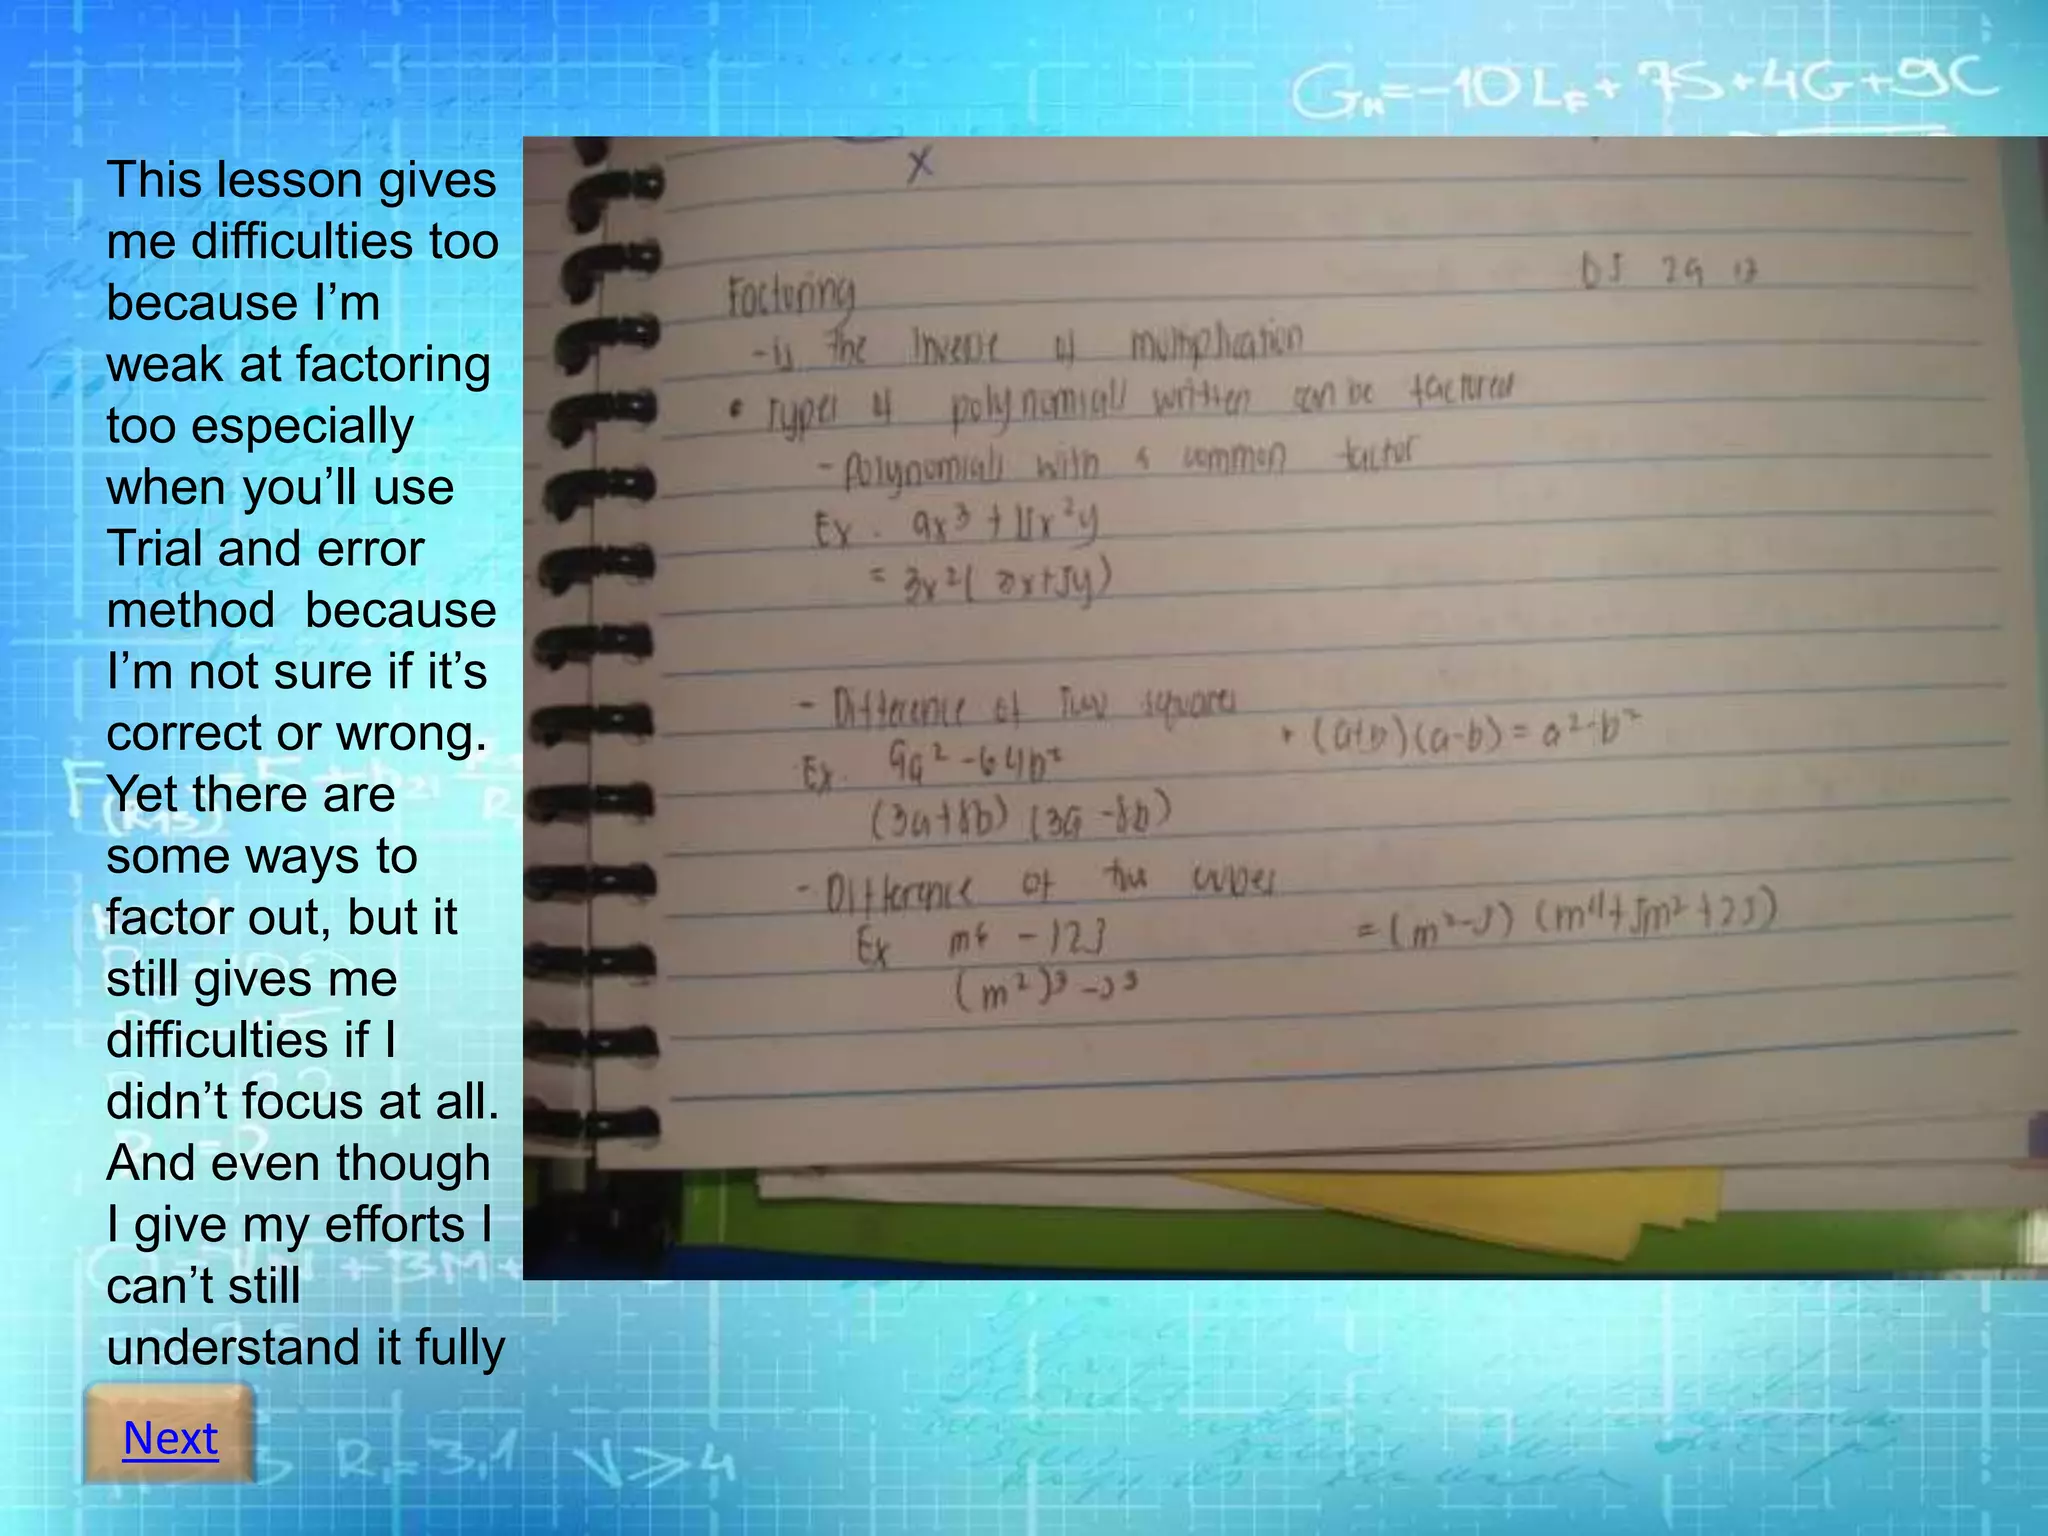 This lesson gives
me difficulties too
because I’m
weak at factoring
too especially
when you’ll use
Trial and error
method because
I’m not sure if it’s
correct or wrong.
Yet there are
some ways to
factor out, but it
still gives me
difficulties if I
didn’t focus at all.
And even though
I give my efforts I
can’t still
understand it fully
Next
Gн=-10LF+7S+4G+9C
X
Factoring
-is the inverse of multiplication
• Types of polynomials written can be factored
- polynomials with a common factor
Ex. 9x³ + 15x²y
= 3x²(3x+5y)
- Difference of Two squares
• (a+b)(a-b) = a²-b²
Ex. 9a² - 64b²
(3a+8b) (3a-8b)
- Difference of two cubes
Ex m6 - 125
= (m²-5) (m4+5m²+25)
(m²)³-5³
R = 3,1 V≥4